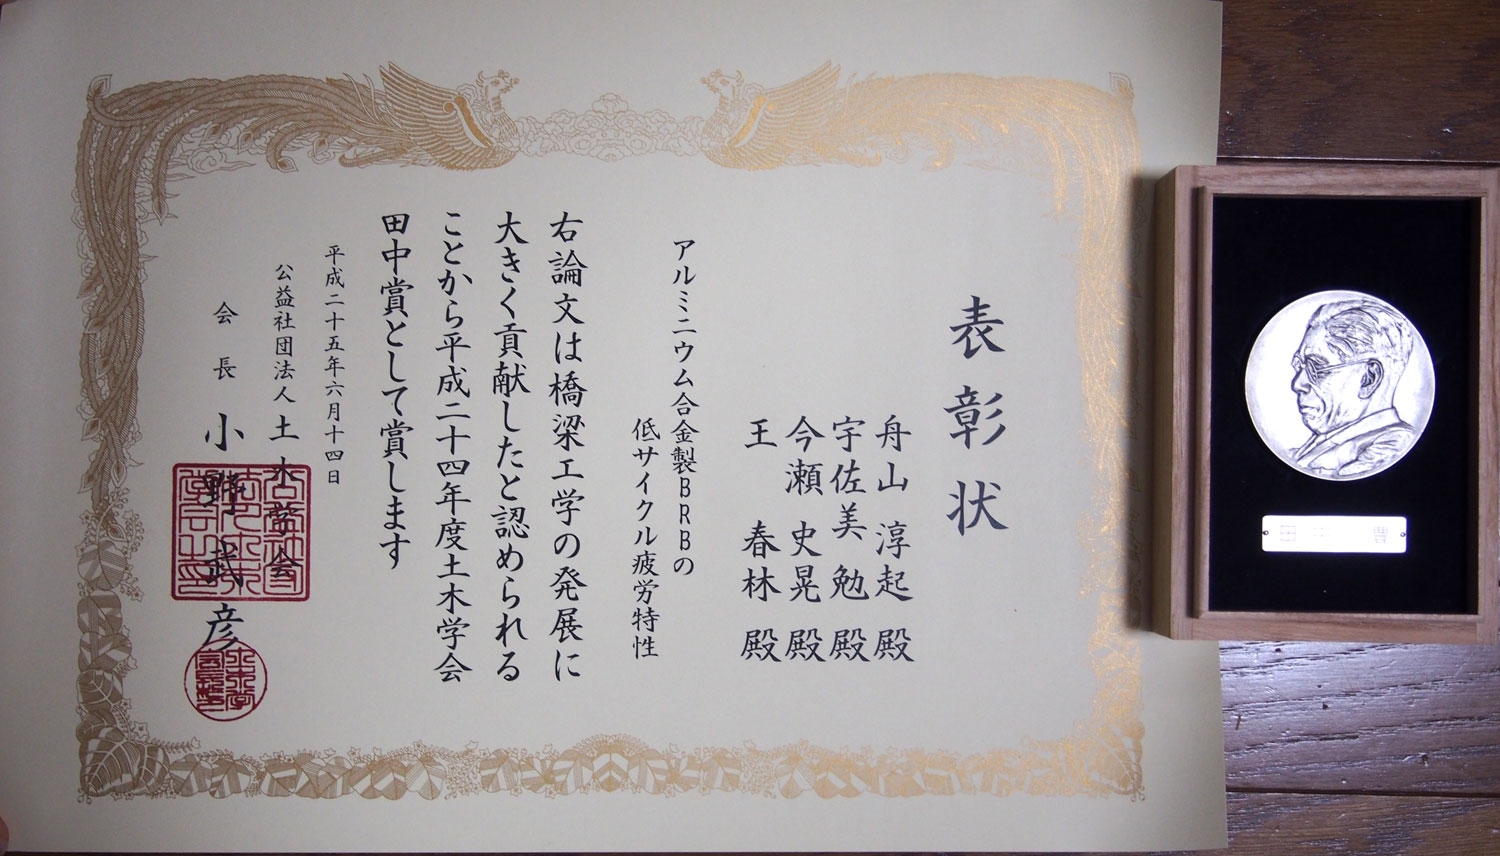 表彰状
舟山 淳起 殿
宇佐美 勉 殿
今瀬 史晃 殿
王 春林 殿
アルミニウム合金製BRBの
低サイクル疲労特性
右論文は橋梁工学の発展に
大きく貢献したと認められる
ことから平成二十四年度土木学会
田中賞として賞します
平成二十五年六月十四日
公益社団法人 土木学会
会長 小野武彦
田中 豊